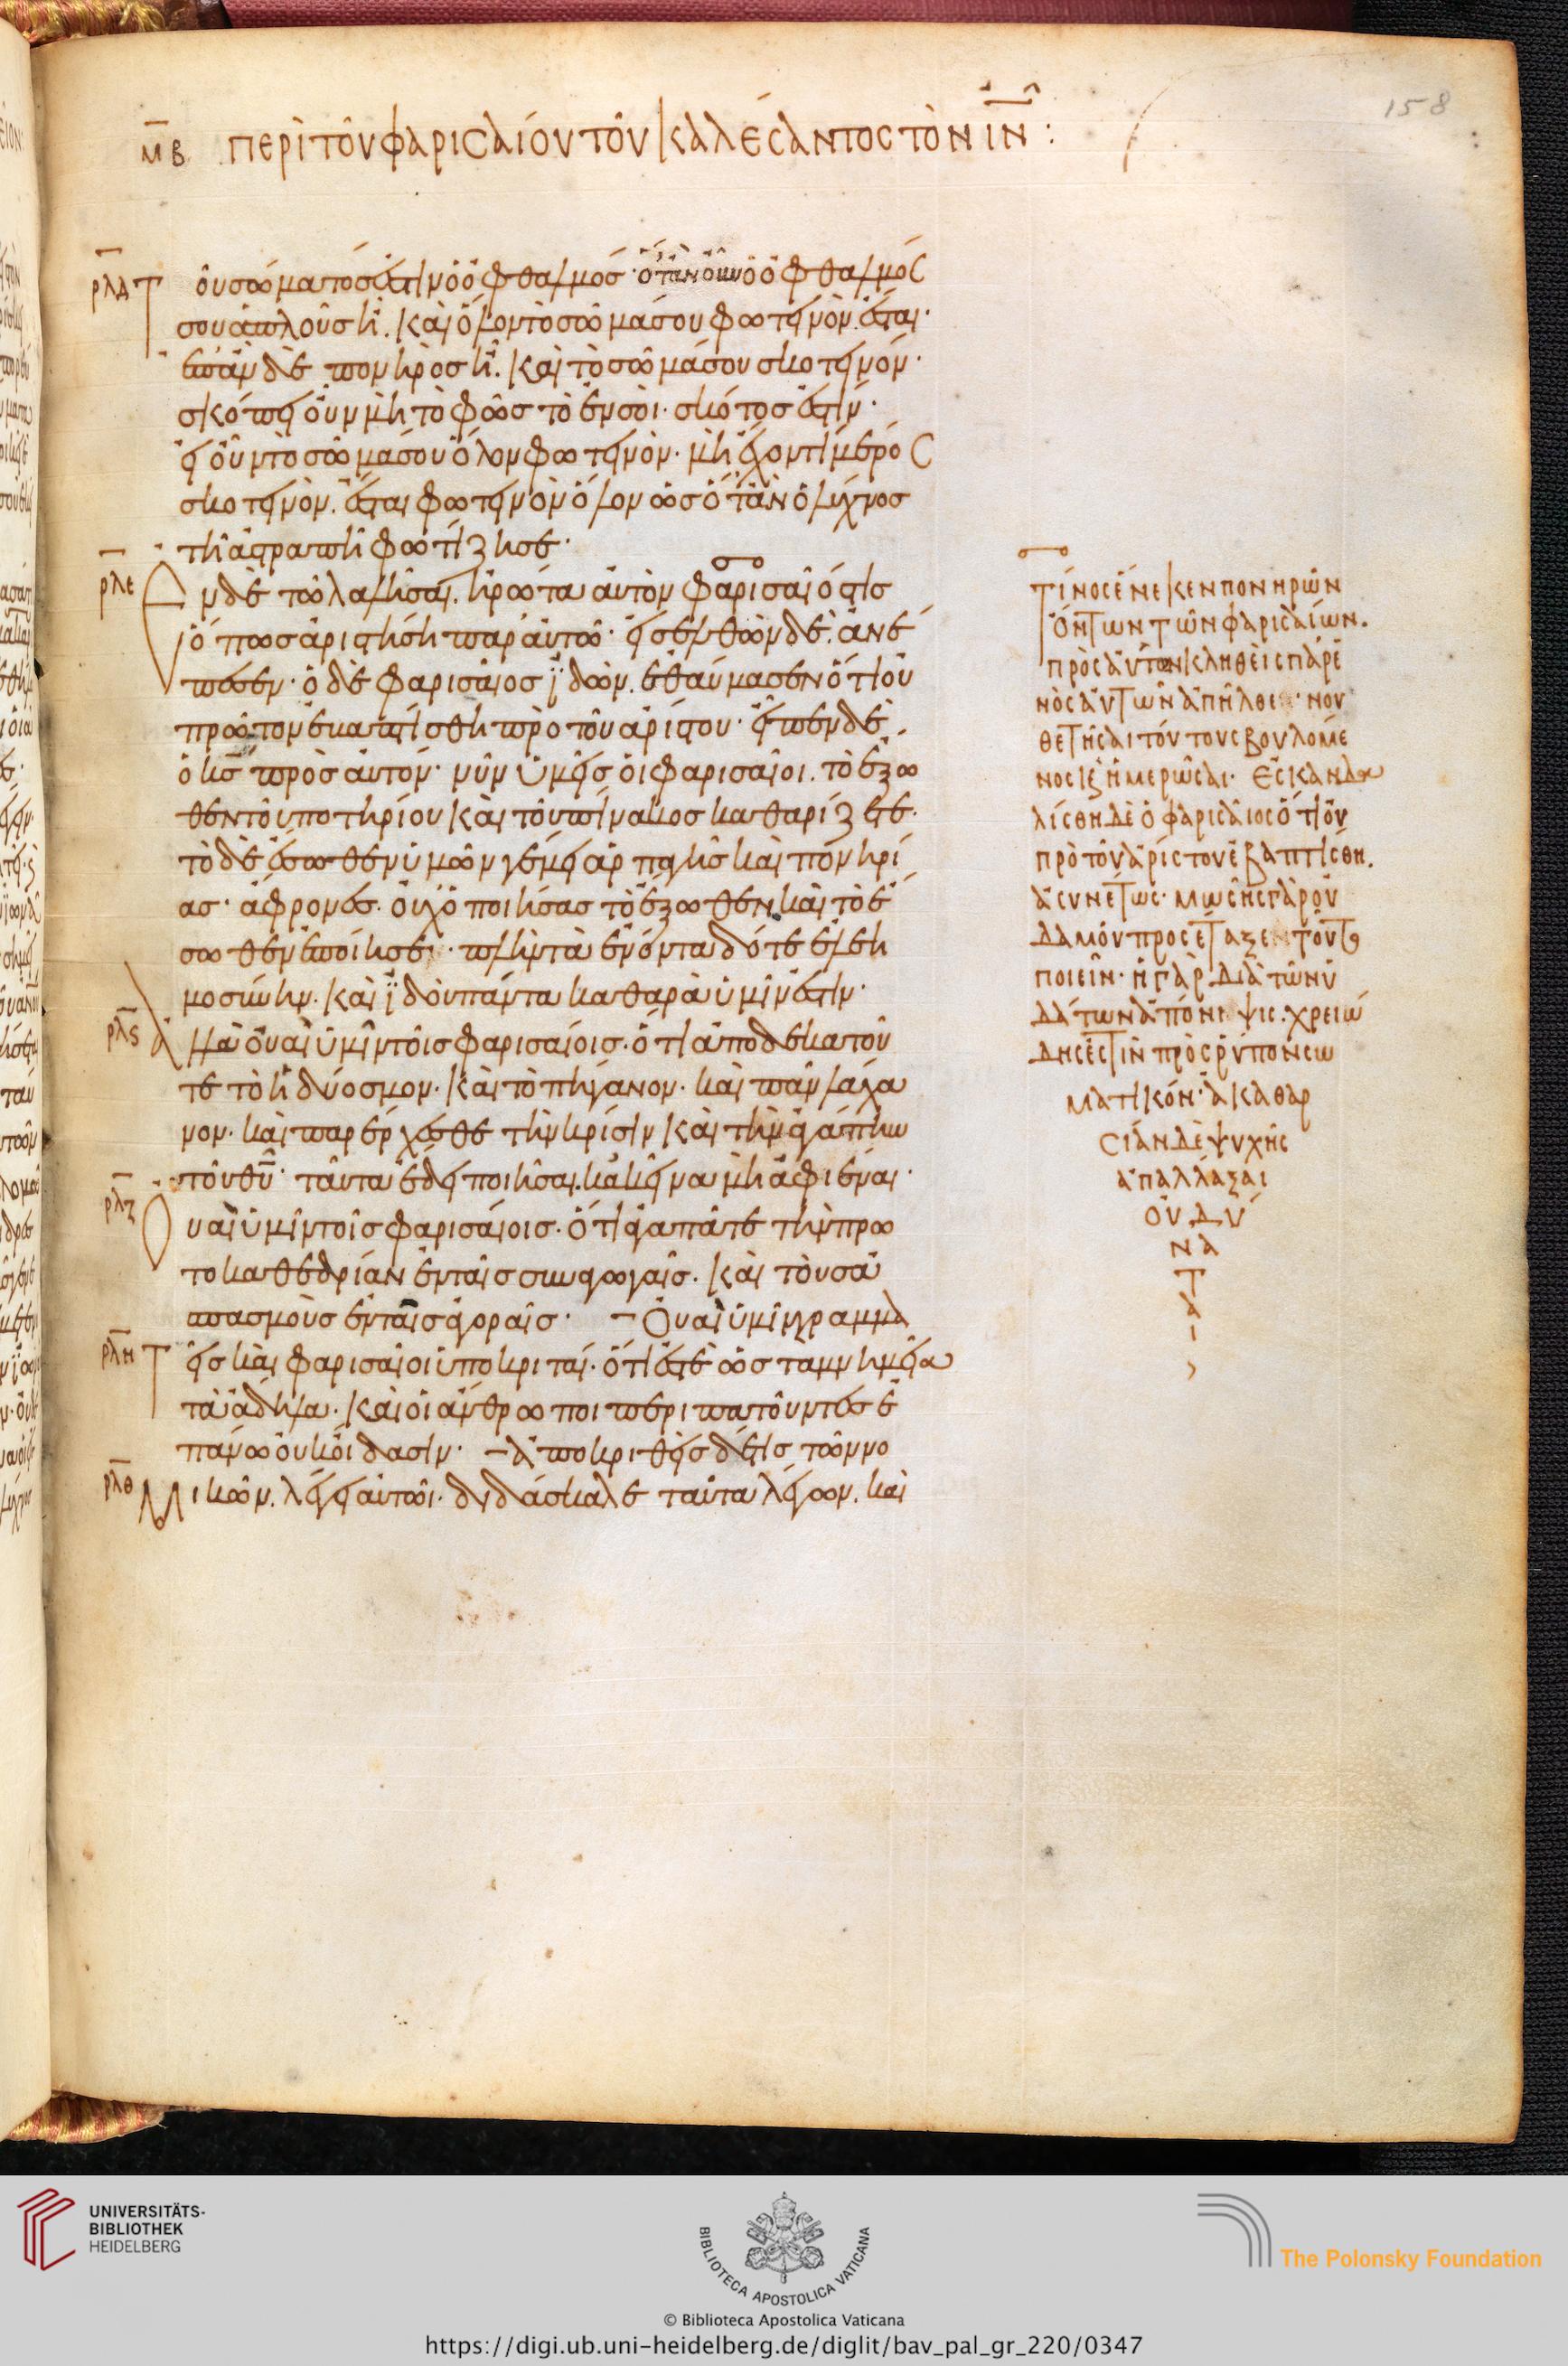 158
μβ περὶ τοῦ φαρισαίου τοῦ καλέσαντος τὸν ιν :
ρλδ Τοῦ σώματός ἐστιν ὁ ὀφθαλμός· ὅταν οὖν ὁ ὀφθαλμός
σου ἁπλοῦς ἦ. καὶ ὅλον τὸ σῶμά σου φωτεινόν ἔσται·
ἐπὰν δὲ πονηρὸς ἦ. καὶ τὸ σῶμά σου σκοτεινόν·
σκόπει οὖν μὴ τὸ φῶς τὸ ἐν σοὶ· σκότος ἐστίν·
εἰ οὖν τὸ σῶμά σου ὅλον φωτεινὸν· μὴ ἔχον τὶ μέρος
σκοτεινὸν. ἔσται φωτεινὸν ὅλον ὡς ὅταν ὁ λύχνος
τῆ ἀστραπῆ φωτίζη σε·
ρλε Ἐν δὲ τῶ λαλῆσαι. ἠρώτα αὐτὸν φαρισαῖός τις
ὅπως ἀριστήση παρ' αὐτῶ· εἰσελθὼν δὲ. ἀνέ
πεσεν· ὁ δὲ φαρισαῖος ἰδὼν. ἐθαύμασεν ὅτι οὐ
πρῶτον ἐβαπτίσθη πρὸ τοῦ ἀρίστου· εἶπεν δὲ
ὁ κς πρὸς αὐτόν· νῦν ὑμεῖς οἱ φαρισαῖοι. τὸ ἔξω
θεν τοῦ ποτηρίου καὶ τοῦ πίνακος καθαρίζετε·
τὸ δὲ ἔσωθεν ὑμῶν γέμει ἁρπαγῆς καὶ πονηρί
ας· ἄφρονες. οὐχ ὁ ποιήσας τὸ ἔξωθεν καὶ τὸ ἔ
σωθεν ἐποίησε· πλὴν τὰ ἐνόντα δότε ἐλεη
μοσύνην. καὶ ἰδοὺ πάντα καθαρὰ ὑμῖν ἐστίν·
ρλς ἀλλὰ οὐαὶ ὑμῖν τοῖς φαρισαίοις. ὅτι ἀποδεκατοῦ
τε τὸ ἡδύοσμον· καὶ τὸ πήγανον· καὶ πᾶν λάχα
νον· καὶ παρέρχεσθε τὴν κρίσιν καὶ τὴν ἀγάπην
τοῦ θυ· ταῦτα ἔδει ποιῆσαι. κἀκεῖνα μὴ ἀφιέναι·
ρλζ Οὐαὶ ὑμῖν τοῖς φαρισαίοις. ὅτι ἀγαπᾶτε τὴν πρω
τοκαθεδρίαν ἐν ταῖς συναγωγαῖς. καὶ τοὺς ἀ
σπασμοὺς ἐν ταῖς ἀγοραῖς· – Οὐαὶ ὑμῖν γραμμα
ρλη Τεῖς καὶ φαρισαῖοι ὑποκριταί. ὅτι ἐστὲ ὡς τὰ μνημεῖα
τὰ ἄδηλα. καὶ οἱ ἄνθρωποι περιπατοῦντες ἐ
πάνω οὐκ οἴδασιν· – ἀποκριθεὶς δέ τις τῶν νο
ρλθ Μικῶν. λέγει αὐτῶι· διδάσκαλε ταῦτα λέγων. καὶ
Τίνος ἕνεκεν πονηρῶν
ὄντων τῶν φαρισαίων.
πρὸς αὐτῶν κληθεὶς παρ' ἑ
νὸς αὐτῶν ἀπῆλθε· νου
θετῆσαι τούτους βουλόμε
νος ἐξημερῶσαι· Ἐσκανδα
λίσθη δὲ ὁ φαρισαῖος ὅτι οὐ
πρὸ τοῦ ἀρίστου ἐβαπτίσθη.
ἀσυνέτως· μωσῆς γὰρ οὐ
δαμοῦ προσέταξε τοῦτο
ποιεῖν· ἡ γὰρ διὰ τῶν ὑ
δάτων ἀπόνιψις. χρειώ
δης ἐστὶν πρὸς ῥύπον σω
ματικόν· ἀκαθαρ
σίαν δὲ ψυχῆς
ἀπαλλάξαι
οὐ δύ
να
τ
α
ι
,
UNIVERSITÄTS-
BIBLIOTHEK
HEIDELBERG
BIBLIOTECA APOSTOLICA VATICANA
The Polonsky Foundation
© Biblioteca Apostolica Vaticana
https://digi.ub.uni-heidelberg.de/diglit/bav_pal_gr_220/0347